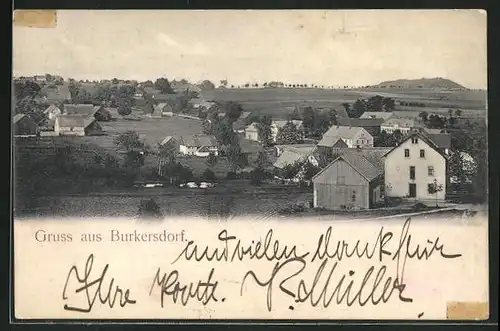 Gruss aus Burkersdorf.
und vielen Dank für
Ihre Karte. R. Müller